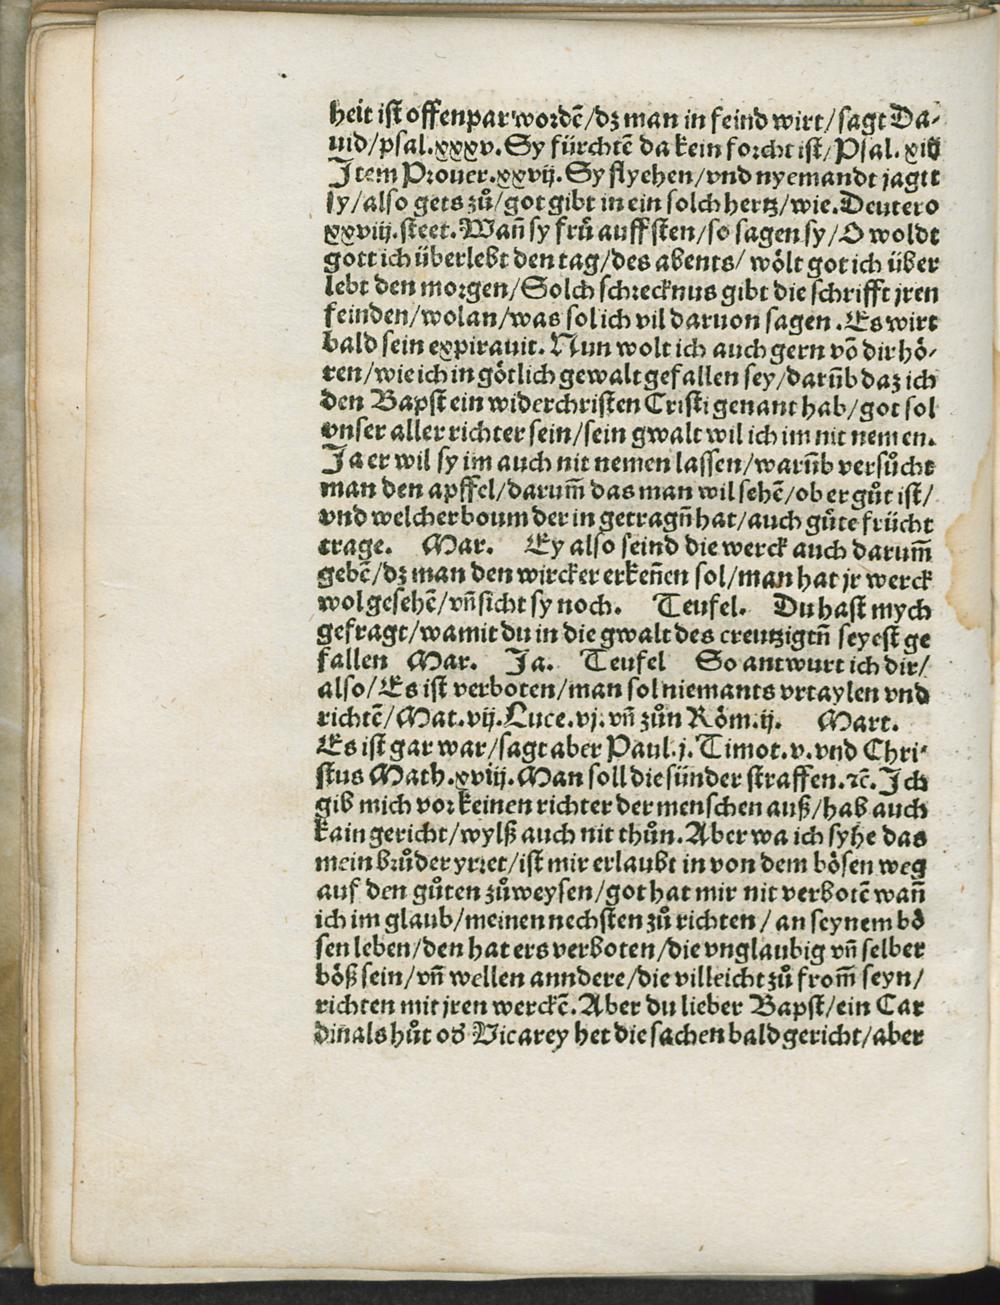 heit ist offenpar wordẽ/dz man in feind wirt/sagt Da-
uid/psal.xxxv. Sy fürchtẽ da kein forcht ist/Psal. xiij
Item Prouer.xxvij. Sy flyehen/vnd nyemandt jagtt
sy/also gets zuͦ/got gibt in ein solch hertz/wie. Deutero
xxviij. steet. Wañ sy fruͤ auff sten/so sagen sy/O woldt
gott ich überlebt den tag/des abents/ woͤlt got ich über
lebt den morgen/Solch schrecknus gibt die schrifft jren
feinden/wolan/was sol ich vil daruon sagen. Es wirt
bald sein expirauit. Nun wolt ich auch gern võ dir hoͤ-
ren/wie ich in goͤtlich gewalt gefallen sey/darũb daz ich
den Bapst ein widerchristen Cristi genant hab/got sol
vnser aller richter sein/sein gwalt wil ich im nit nemen.
Ja er wil sy im auch nit nemen lassen/warũb versuͦcht
man den apffel/darum̃ das man wil sehẽ/ob er guͦt ist/
vnd welcher boum der in getragñ hat/auch guͤte frücht
trage. Mar. Ey also seind die werck auch darum̃
gebẽ/dz man den wircker erkeñen sol/man hat jr werck
wol gesehẽ/vñ sicht sy noch. Teufel. Du hast mych
gefragt/wamit du in die gwalt des creutzigtñ seyest ge
fallen Mar. Ja. Teufel So antwurt ich dir/
also/Es ist verboten/man sol niemants vrtaylen vnd
richtẽ/Mat.vij. Luce.vj. vñ zuͦn Roͤm.ij. Mart.
Es ist gar war/sagt aber Paul.j. Timot.v. vnd Chri-
stus Math.xviij. Man soll die sünder straffen.⁊c̃. Ich
gib mich vor keinen richter der menschen auß/hab auch
kain gericht/wylß auch nit thuͦn. Aber wa ich syhe das
mein bruͦder yrret/ist mir erlaubt in von dem boͤsen weg
auf den guͦten zuͦweysen/got hat mir nit verbotẽ wañ
ich im glaub/meinen nechsten zuͦ richten / an seynem boͤ
sen leben/den hat ers verboten/die vnglaubig vñ selber
boͤß sein/vñ wellen anndere/die villeicht zuͦ from̃ seyn/
richten mit jren werckẽ. Aber du lieber Bapst/ein Car
dinals huͦt od̕ Vicarey het die sachen bald gericht/aber